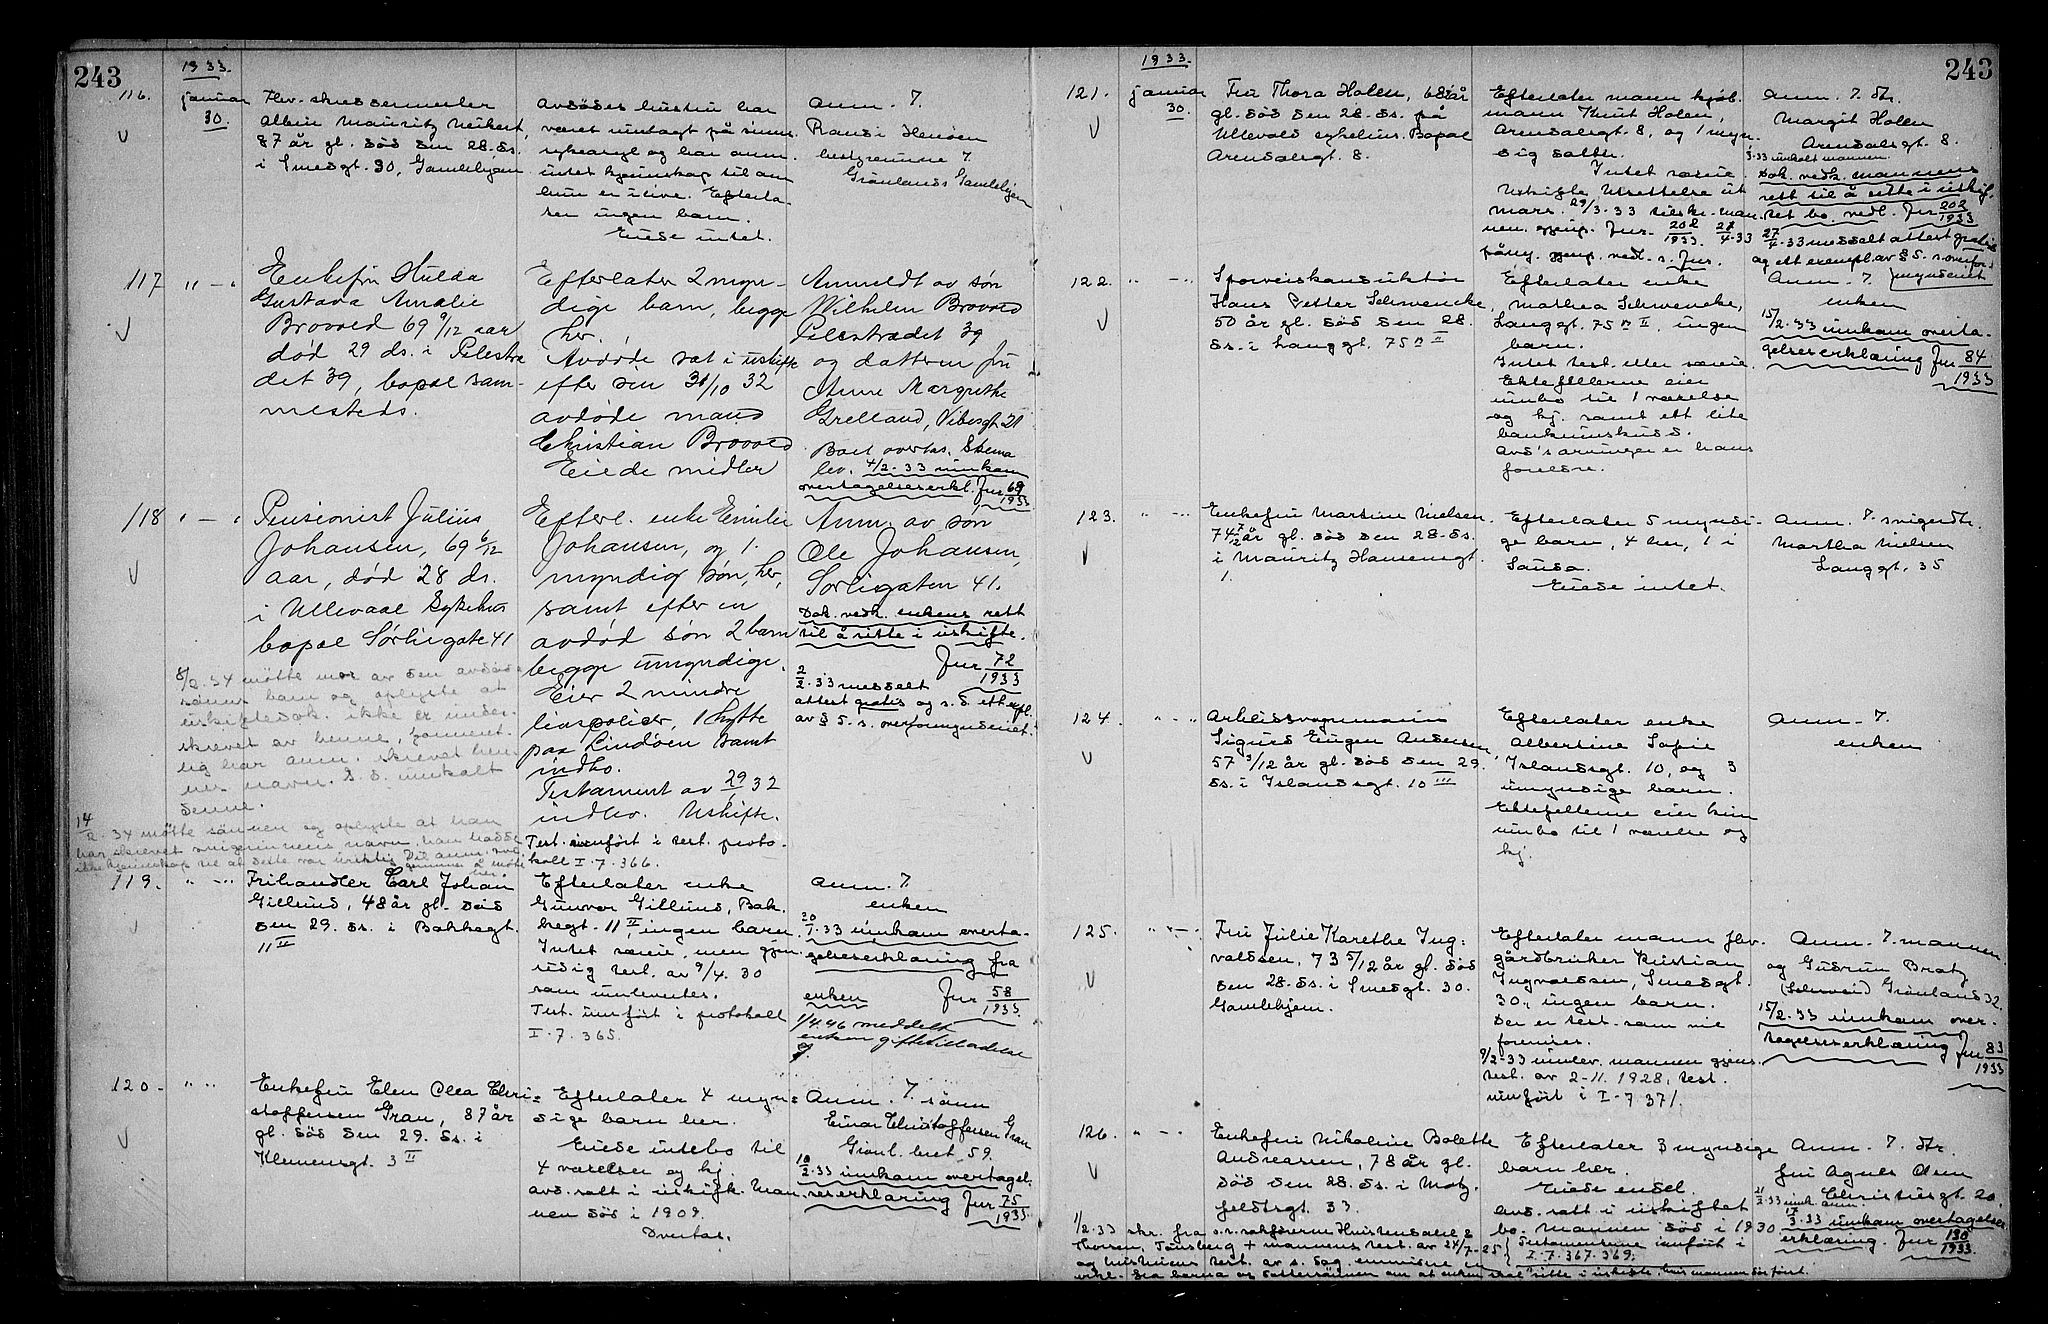 243
1933.
116.
januar
30.
Fhv. skreddermester
Albin Mauritz Neikert,
87 år gl. död den 28. ds.
i Smedgt. 30, Gamlehjem
Avdödes hustru har
været innlagt på sinns-
sykeasyl og har anm.
intet kjennskap til om
hun er i live. Efterla-
ter ingen barn.
Eiede intet.
Anm. 7.
Randi Hensen
bestyrerinne 7
Grönlands Gamlehjem
117
" — "
Enkefru Hulda
Gustava Amalie
Brovold 69 9/12 aar
død 29 ds. i Pilestre
det 39, bopæl sam-
mesteds.
Efterlater 2 myn-
dige barn, begge
her.
Avdøde sat i uskifte
efter sin 31/10 32
avdøde mand
Christian Brovold
Eiede midler
Anmeldt av søn
Wilhelm Brovold
Pilestrædet 39
og datteren fru
Anne Margrethe
Grelland, Vibesgt 21
Boet overtas. Skema
lev. 4/2-33 innkom
overtagelseserkl. Jur 69/1933
118
" — "
Pensionist Julius
Johansen, 69 6/12
aar, død 28 ds.
i Ullevaal Sykehus
bopæl Sørligate 41
Efterl. enke Emilie
Johansen, og 1.
myndig søn, her,
samt efter en
avdød søn 2 barn
begge umyndige.
Eier 2 mindre
livspolicer, 1 hytte
paa Lindøen samt
indbo.
Testament av 29/ 32
indlev. Uskifte.
Test. innfört i test. proto-
koll I. 7. 366.
Anm. av søn
Ole Johansen,
Sørligaten 41.
Dok. vedk. enkens rett
til å sitte i uskifte.
Jur 72/1933
2/2. 33 meddelt
attest gratis og s. d. ett expl.
av § 5. s. overformynderiet.
8/2. 34 mötte mor av den avdöde
sönns barn og oplyste at
uskiftedok. ikke er under-
skrevet av henne,
lig har anm. skrevet hen-
nes navn. S. d. innkalt
denne.
14/2. 34 mötte sönnen og oplyste at han
har skrevet svigerinnens navn. han hadde
ikke kjennskap til at dette var uriktig.
119.
" — "
Frihandler Carl Johan
Gillund, 48 år gl. död
den 29. ds. i Bakkegt.
11 II
Efterlater enke
Gunvor Gillund, Bak-
kegt. 11 II, ingen barn.
Intet særeie, men gjen-
sidig test. av 9/4. 30
som innleveres.
Test. innfört i protokoll
I. 7. 365.
Anm. 7.
enken
20/1. 33 innkom overta-
gelseserklæring fra
enken Jur 58/1933
1/4.46 meddelt
enken giftetilladelse
120.
" "
Enkefru Elen Olea Chri-
stoffersen Gran, 87 år
gl. död den 29. ds. i
Klemensgt. 3 II
Efterlater 4 myn-
dige barn her.
Eiede innbo til
4 værelser og kj.
avd. satt i uskifte. Man-
nen död i 1909.
Overtas.
Anm. 7. sönn
Einar Christoffersen Gran
Grönl. leret 59.
10/2. 33 innkom overtagel-
seserklæring Jur 75/1933
243
1933.
121.
januar
30.
Fru Thora Holen, 68 år
gl. död den 28. ds. på
Ullevål sykehus. Bopæl
Arendalsgt. 8.
Efterlater mann kjöb-
mann Knut Holen,
Arendalsgt. 8, og 1 myn-
dig datter.
Intet særeie.
Uskifte. Utsettelse ut
mars. 29/3. 33 tilskr. man-
nen. gjenp. Jur. 202/1933 27/4.33
påny. gjenp. vedl. s. Jur.
Anm. 7. dtr.
Margit Holen
Arendalsgt. 8.
33 innkalt mannen.
Dok. vedk. mannens
rett til å sitte i uskif-
tet bo. vedl. Jur 202/1933
27/4. 33 meddelt attest gratis
og ett exempl. av § 5. s. overfor-
mynderiet
122.
" — "
Sporveiskonduktör
Hans Petter Schwencke,
50 år gl. död den 28.
ds. i Langgt. 75 B II
Efterlater enke
Mathea Schwencke,
Langgt. 75 B II, ingen
barn.
Intet test. eller særeie.
Ektefellerne eier
innbo til 1 værelse
og kj. samt ett lite
bankinnskudd.
Avd's arvinger er hans
foreldre.
Anm. 7
enken
15/2. 33 innkom overta-
gelseserklæring Jur 84/1933
123.
" — "
Enkefru Martine Nielsen,
74 7/12 år gl. död den 28. ds.
i Mauritz Hansensgt.
1.
Efterlater 5 myndi-
ge barn, 4 her, 1 i
Sauda.
Eiede intet.
Anm. 7. svigerdtr.
Martha Nielsen
Langgt. 35
124.
" — "
Arbeidsvognmann
Sigurd Eugen Andersen
57 3/12 år gl. död den 29.
ds. i Islandsgt. 10 III
Efterlater enke
Albertine Sofie
Islandsgt. 10, og 3
umyndige barn.
Ektefellerne eier kun
innbo til 1 værelse og
kj.
Anm. 7.
enken
125.
" — "
Fru Julie Karethe Ing-
valdsen, 73 5/12 år gl. död
den 28. ds. i Smedgt. 30.
Gamlehjem.
Efterlater mann fhv.
gårdbruker Kristian
Ingvaldsen, Smedgt.
30., ingen barn.
Der er test. som vil
forevises.
9/2-33 innlev. mannen gjens.
test. av 2-11. 1928, test.
innfört i I. 7 371.
Anm. 7. mannen
og Gudrun Bratz
Grönland 32.
15/2. 33 innkom over-
tagelseserklæring Jur 83/1933
126.
" — "
Enkefru Nikoline Bolette
Andreasen, 78 år gl.
död den 28. ds. i Motz-
feldtsgt. 33.
Efterlater 3 myndige
barn her.
Eiede endel.
avd. satt i uskiftet
bo. Mannen död i 1930
Testamentene innfört i
I. 7. 367. 369.
Anm. 7. dtr.
fru Agnes Olsen
Christiesgt. 20.
17/3. 33 innkom overtagelses-
erklæring. Jur 130/1933
1/2. 33 skr. fra o. r. sakförerne &
Thorsen, Tönsberg + mannens test. av 24/7-25
og hustruens test. av s. dag
erkl. fra barna og dattersönnen om at enken skal sitte i uskifte, hvis mannen dör först.